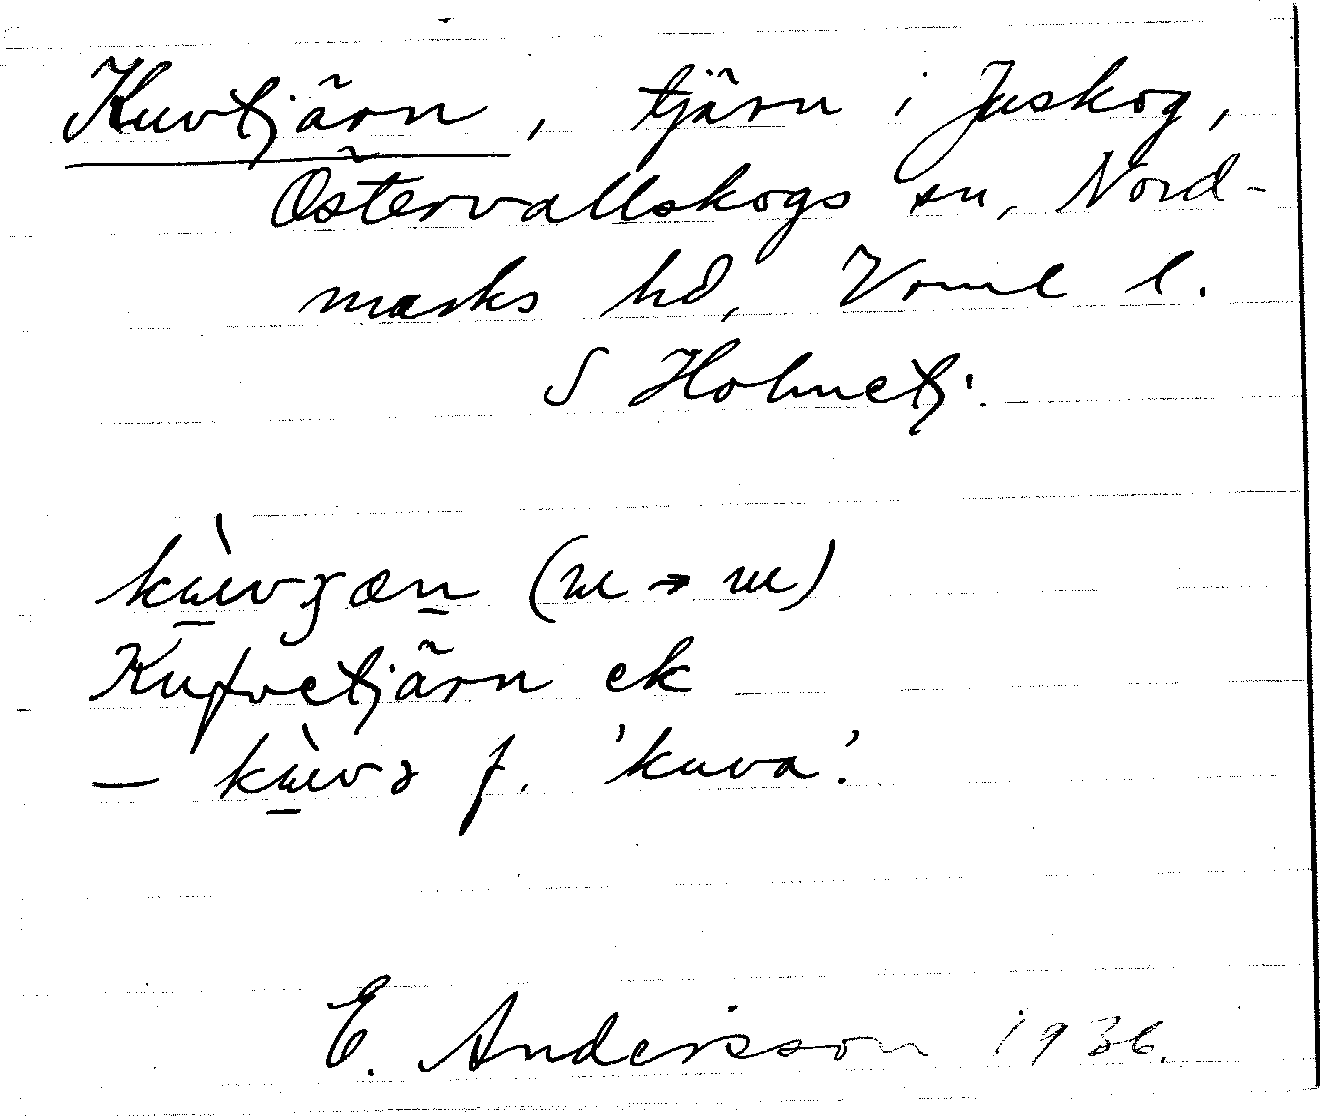 Kuvtjärn, tjärn i Juskog,
Östervallskogs sn, Nord-
marks hd, Vrml l.
S Holmetj.
(ɯ → ɯ)
Kufvetjärn ek
— f. 'kuva'.
E. Andersson 1936.